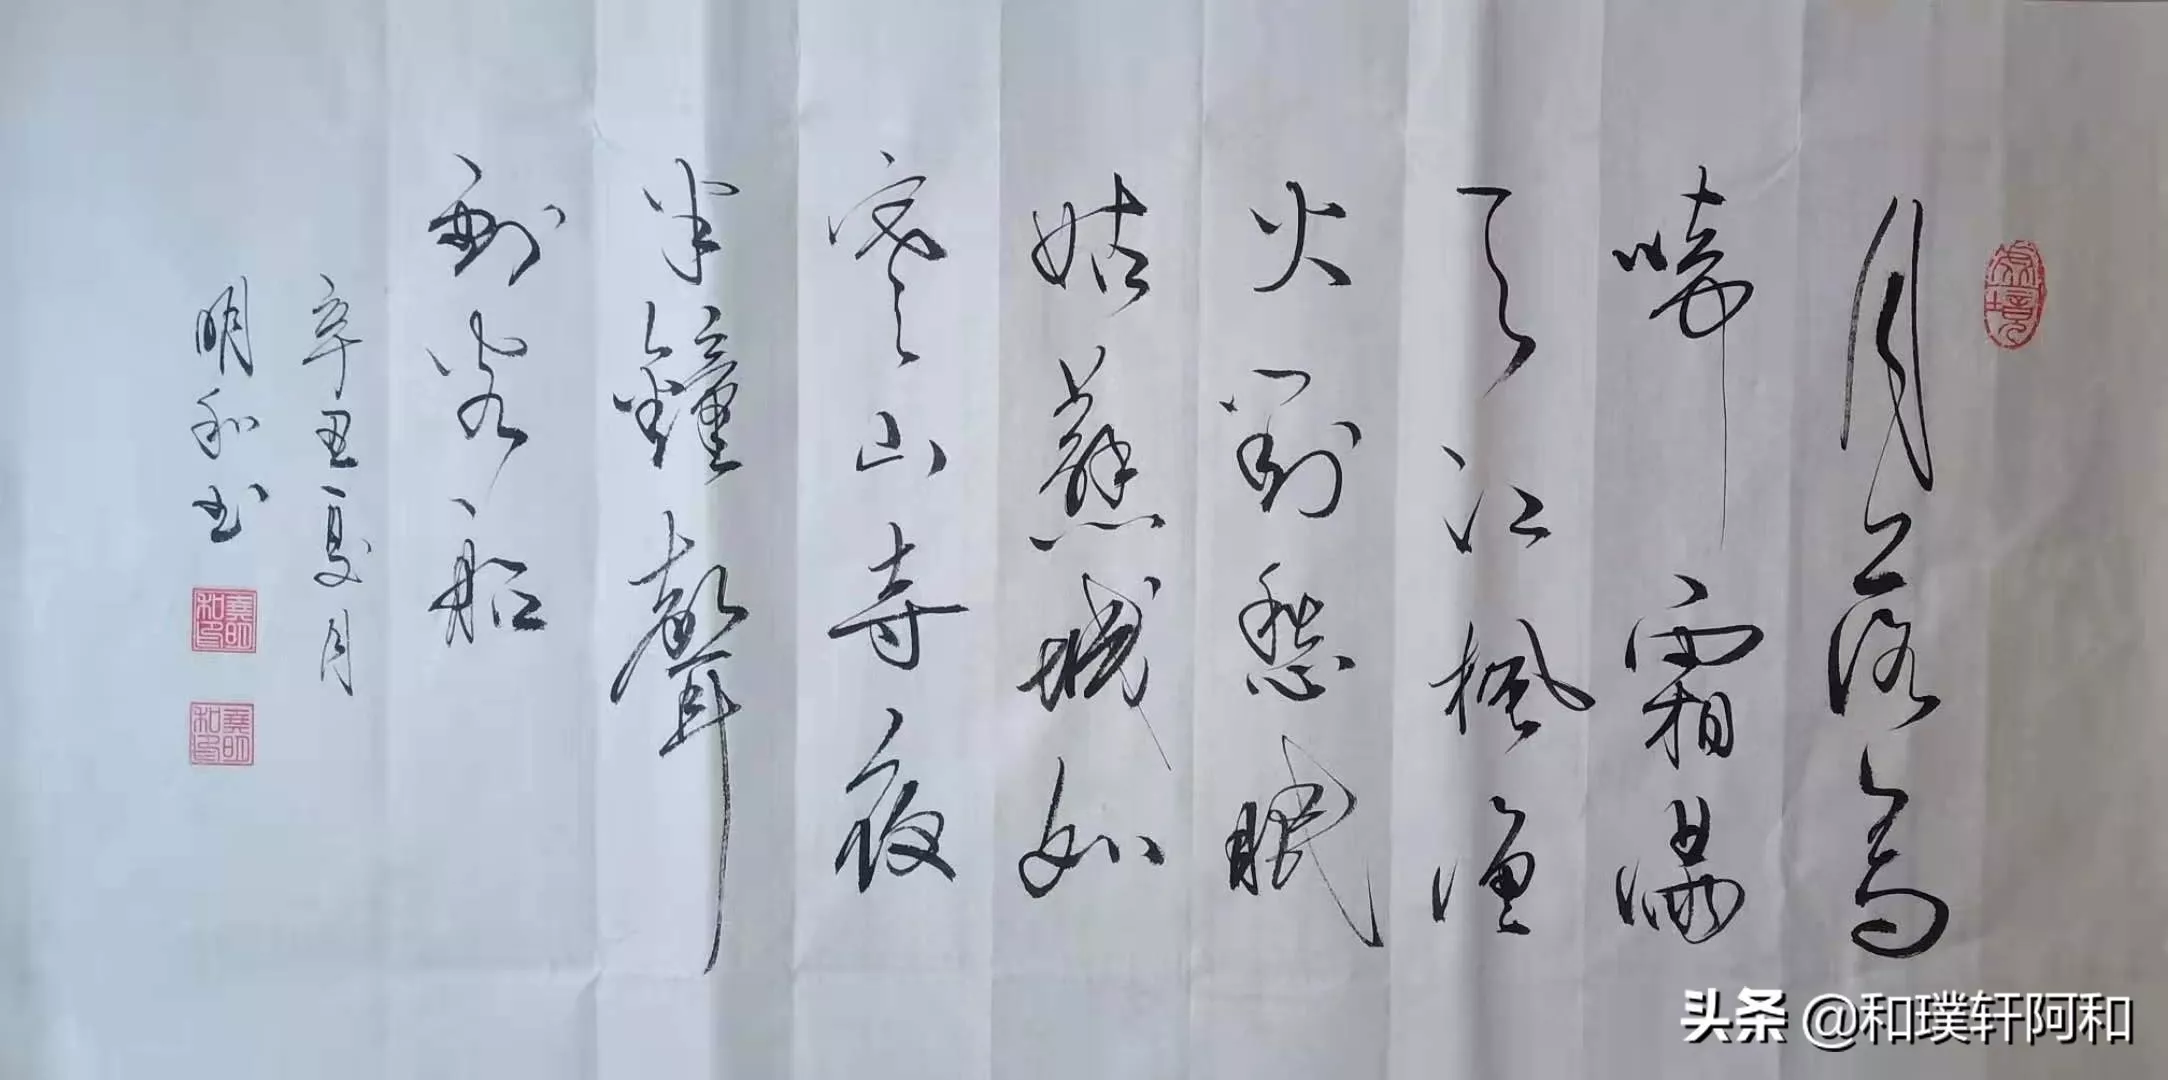 月落烏
啼霜滿
天江楓漁
火對愁眠
姑蘇城外
寒山寺夜
半鐘聲
到客船
辛丑夏月
明和书
头条 @和璞轩阿和